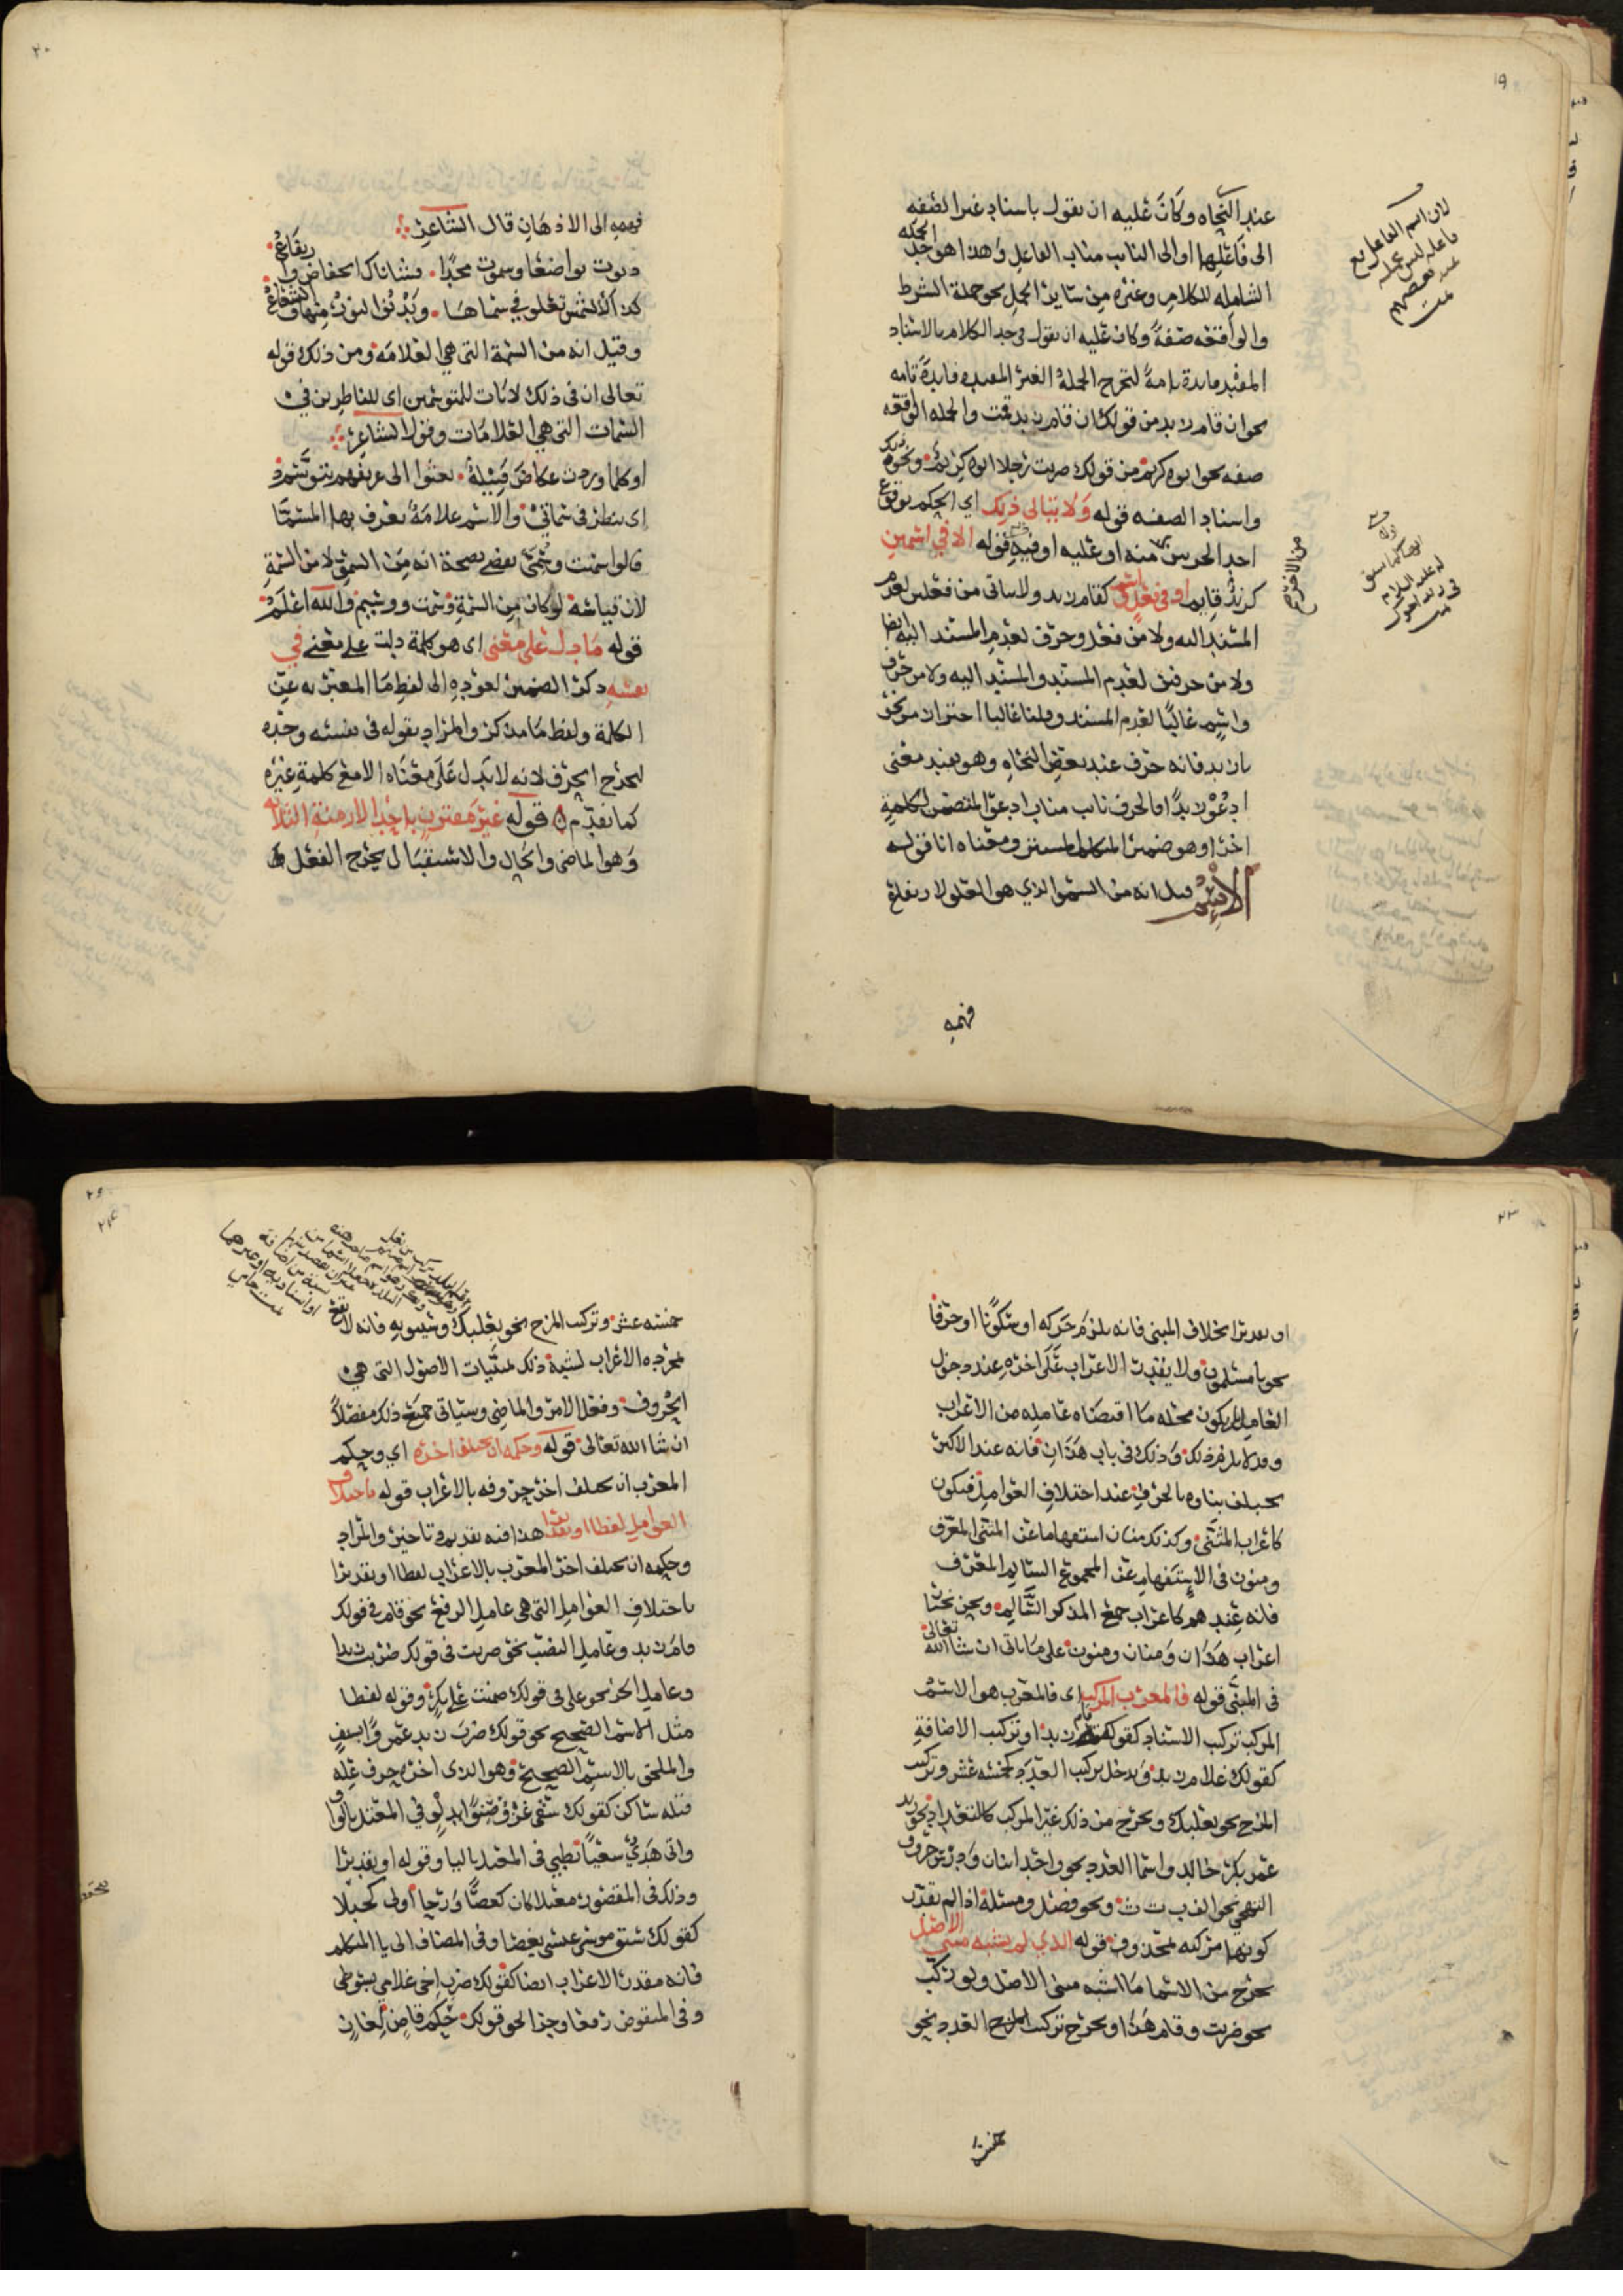 ١٩
عند النحاه وكان عليه ان يقول باسناد غير الصفه
الى فاعلها او الى النايب مناب الفاعل وهذا هو حد الجمله
الشامله للكلام وغيره من ساير الجمل نحو جملة الشرط
والواقعه صفة وكان عليه ان يقول في حد الكلام بالاسناد
المفيد فايدة تامة لتخرج الجملة الغير المفيده فايدة تامه
نحو ان قام زيد من قولك ان قام زيد قمت والجمله الواقعه
صفه نحو ابوه كريم من قولك مررت برجل ابوه كريم ونحو ذلك
واسناد الصفه قوله ولا يتاتى ذلك اي الحكم بوقوع
احد الجزين منه او عليه او فيه قوله الا في اسمين
كزيد قايم او في فعل واسم كقام زيد ولا ياتى من فعلين لعدم
المسند اليه ولا من فعل وحرف لعدم المسند اليه ايضا
ولا من حرفين لعدم المسند والمسند اليه ولا من حرف
واسم غالبا لعدم المسند وقلنا غالبا احترازا من نحو
يا زيد فانه حرف عند بعض النحاه وهو يفيد معنى
ادعو زيدا اما لحرف ناب مناب ادعو المتضمن لكلمة
اخرا وهو ضمير المتكلم المستتر ومعناه انا قوله
الاسم قيل انه من السمو الذي هو العلو لارتفاع
فهمه
لان اسم الفاعل مع
فاعله ليس بجمله
عند بعضهم
تمت
من الاخر صح
٢٠
فهمه الى الاذهان قال الشاعر
دنوت تواضعا وسموت مجدا فشاناك انخفاض وارتفاع
كذا الشمس تعلو في سماها ويدنوا النور منها والشعاع
وقيل انه من السمة التي هي العلامه ومن ذلك قوله
تعالى ان في ذلك لايات للمتوسمين اي للناظرين في
السمات التي هي العلامات وقول الشاعر
اوكلما وردت عكاض قبيلة بعثوا الى عريفهم يتوسم
اي ينظر في سماتي والاسم علامة يعرف بها المسما
قالوا سمت وسمي يقضي بصحة انه من السمو لا من السمة
لان قياسه لو كان من السمة وسمت ووسيم والله اعلم
قوله ما دل على معنى اي هو كلمة دلت على معنى في
نفسه ذكر الضمير لعوده الى لفظ ما المعبر به عن
الكلمة ولفظ ما مذكر والمراد بقوله في نفسه وحده
ليخرج الحرف لانه لا يدل على معناه الا مع كلمة غيره
كما تقدم قوله غير مقترن باحد الازمنة الثلاثه
وهو الماضي والحال والاستقبال يخرج الفعل
٢٣
او تقديرا بخلاف المبني فانه يلزم حركه او سكونا او حرفا
نحو يا مسلمون ولا يقدر الاعراب على اخره عند دخول
العامل بل يكون محله ما اقتضاه عامله من الاعراب
وقد لا يلزم ذلك وذلك في باب هذان فانه عند الاكثر
يختلف بناوه بالحرف عند اختلاف العوامل فيكون
كاعراب المثنى وكذلك منان استفهاما عن المثنى المعرف
ومنون في الاستفهام عن المجموع السالم المعرف
فانه عندهم كاعراب جمع المذكر السالم ونحن نختار
اعراب هذان ومنان ومنون على ما ياتي ان شا الله تعالى
في المبني قوله فالمعرب المركب اي فالمعرب هو الاسم
المركب تركيب الاسناد كقولك قام زيد او تركيب الاضافة
كقولك غلام زيد ويدخل تركيب العدد كخمسه عشر وتركيب
المزج نحو بعلبك ويخرج من ذلك غير المركب كالتعداد نحو زيد
عمر بكر خالد واسما العدد نحو واحد اثنان ودون حروف
التهجي نحو الف ب ت ث ونحو فصل ومسئلة اذا لم نقدر
كونها مركبه لمحذوف قوله الذي لم يشبه مبني الاصل
يخرج من الاسما ما اشبه مبني الاصل ولو ركب
نحو ضربت وقام هذا ويخرج تركيب المزج العدد نحو
خمسة
٢٤
خمسه عشر وتركيب المزج نحو بعلبك وسيبويه فانه لا يقع
بمجرده الاعراب لشبه ذلك مبنيات الاصول التي هي
الحروف وفعل الامر والماضي وسياتي جميع ذلك مفصلا
ان شا الله تعالى قوله وحكمه ان يختلف اخره اي وحكم
المعرب ان يختلف اخر حروفه بالاعراب قوله باختلاف
العوامل لفظا او تقديرا هذا فيه تقديم وتاخير والمراد
وحكمه ان يختلف اخر المعرب بالاعراب لفظا او تقديرا
باختلاف العوامل التي هي عامل الرفع نحو قام في قولك
قام زيد وعامل النصب نحو ضربت في قولك ضربت زيدا
وعامل الجر نحو على في قولك صمت على بكر وقوله لفظا
مثل الاسم الصحيح نحو قولك ضرب زيد عمرا بسيف
والملحق بالاسم الصحيح وهو الذي اخره حرف عله
قبله ساكن كقولك سقى غزو صنوا بدلو في المعتل بالواو
واتى هدي سعيا بظبي في المعتل باليا وقوله او تقديرا
وذلك في المقصور معتلا كان كعصا ورحا او لا كحبلى
كقولك شق موسى عيسى بعصا وفي المضاف الى يا المتكلم
فانه مقدر الاعراب ايضا كقولك ضرب اخي غلامي بسوطي
وفي المنقوص رفعا وجرا نحو قولك حكم قاض لغاز